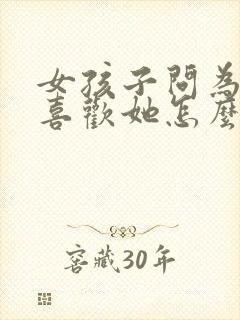 女孩子問為
喜歡她怎麼
窖藏30年